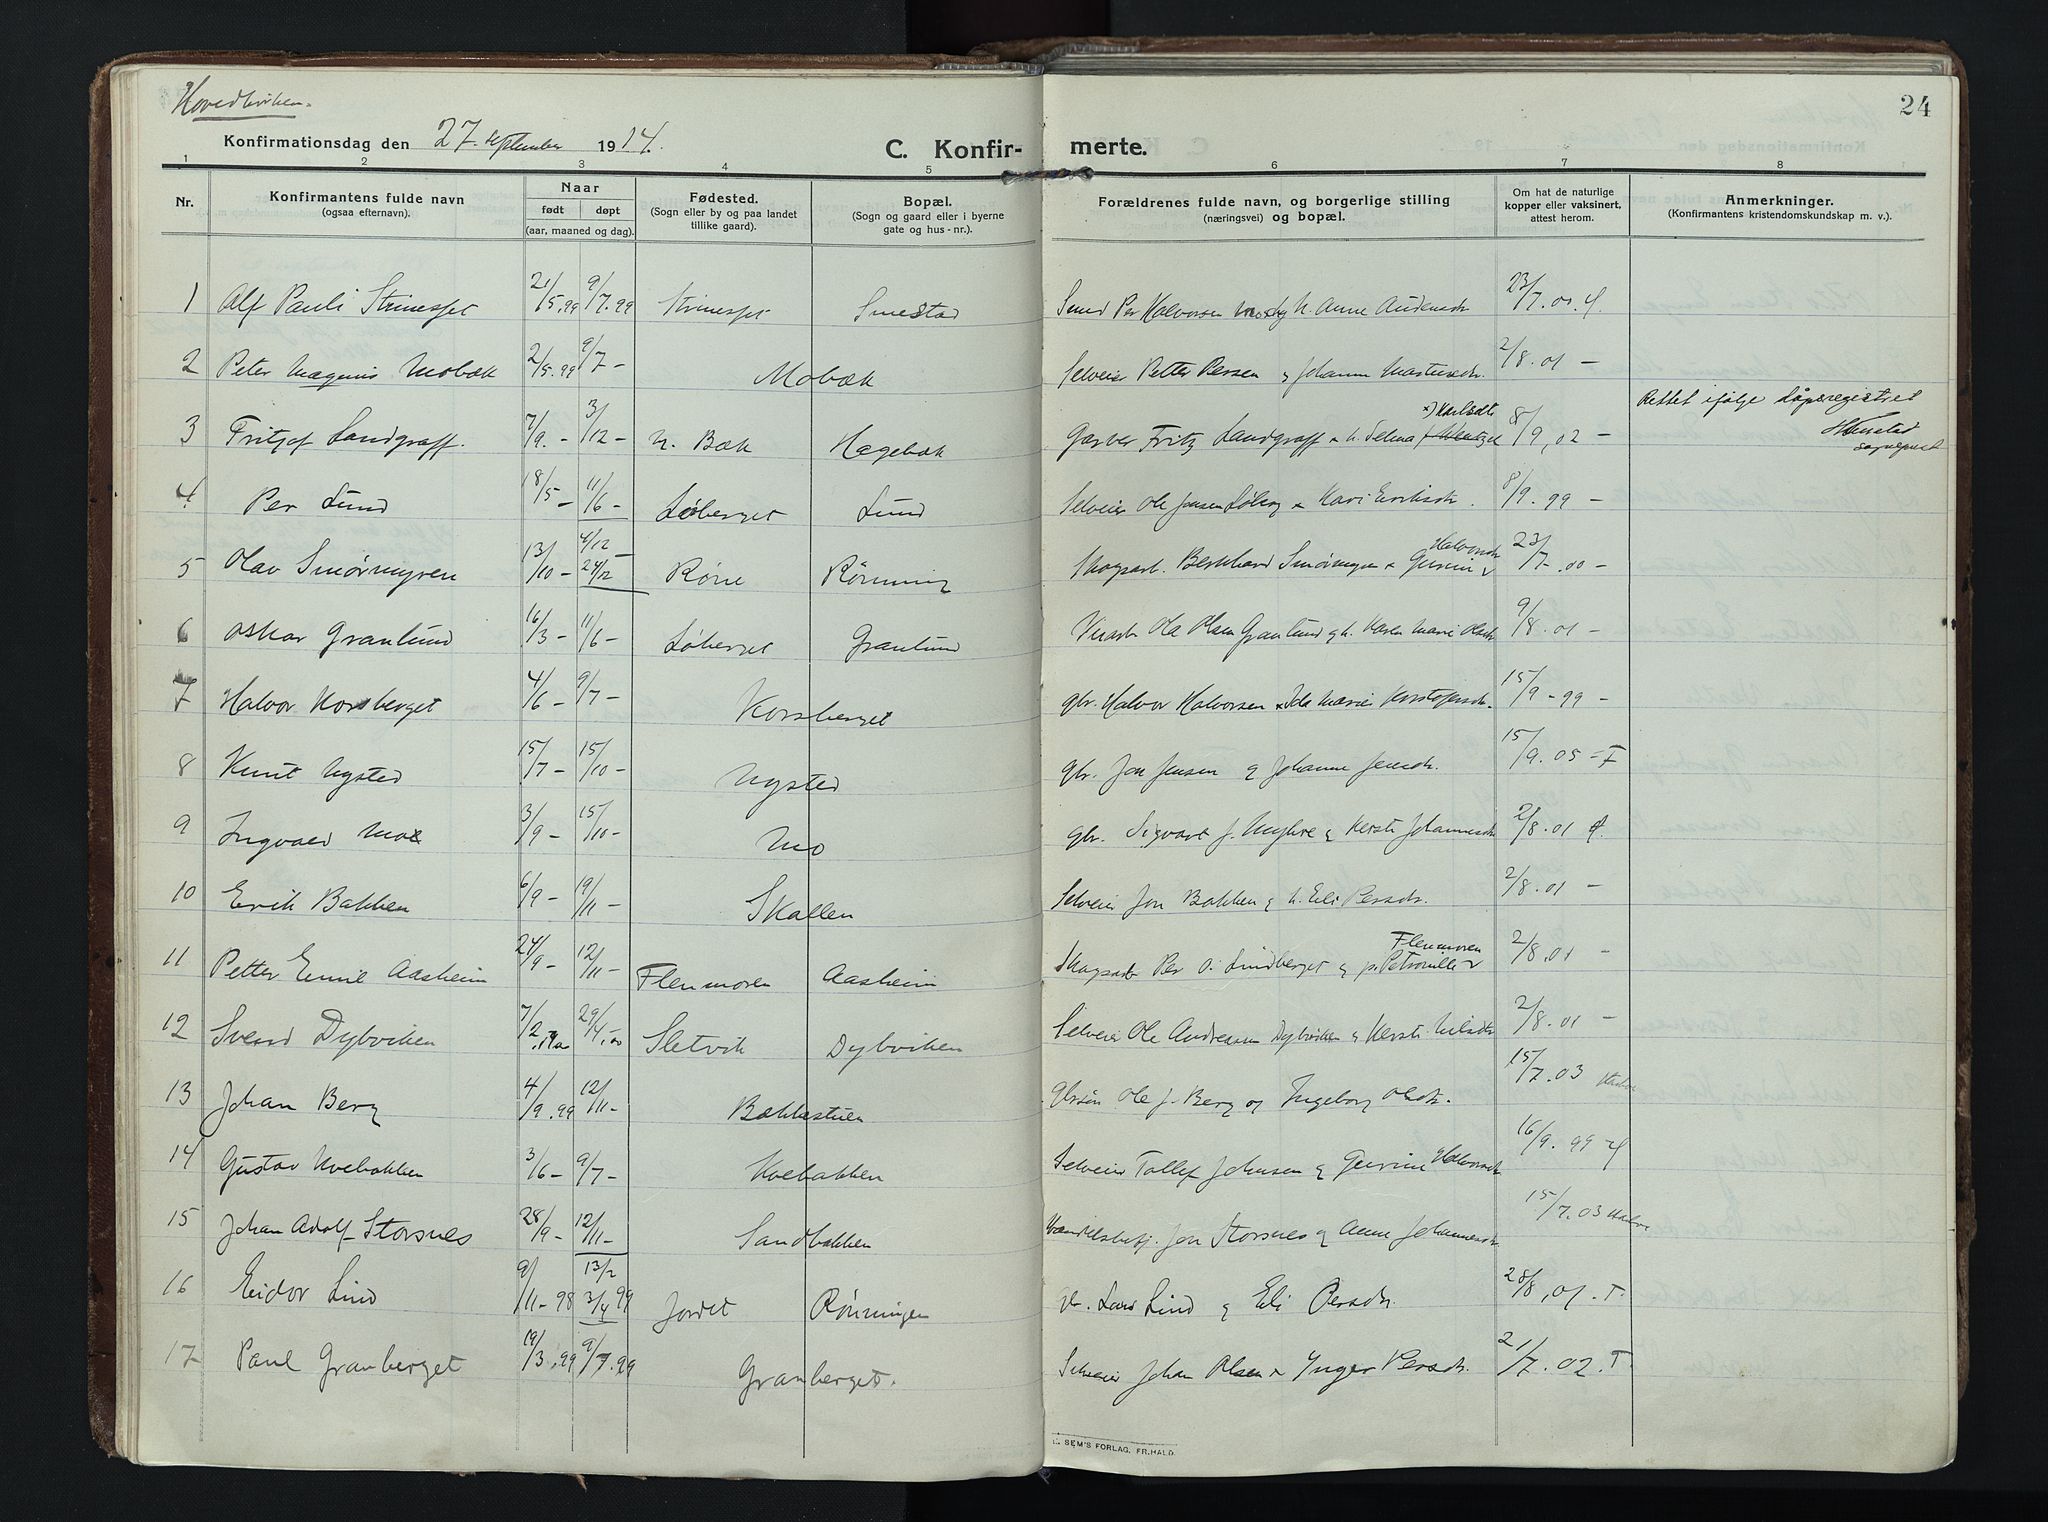 Hovedkirken.
24
Konfirmationsdag den 27. september 1914.
C. Konfirmerte.
1 2 3 4 5 6 7 8
Nr.
Konfirmantens fulde navn (ogsaa efternavn).
Naar født døpt (aar, maaned og dag).
Fødested. (Sogn eller by og paa landet tillike gaard).
Bopæl. (Sogn og gaard eller i byerne gate og hus-nr.).
Forældrenes fulde navn, og borgerlige stilling (næringsvei) og bopæl.
Om hat de naturlige kopper eller vaksinert, attest herom.
Anmerkninger. (Konfirmantens kristendomskundskap m. v.).
1 Alf Pauli Strinesset 21/5.99 9/7.99 Strinesset Smestad Smed Per Halvorsen h. Anne 23/7.01
2 Peter Magnus Mobæk 2/5.99 9/7 — Mobæk Selveier Petter Persen & Johanne 2/8.01 —
Rettet ifølge dåpsregistret
sogneprest
3 Fritjof Landgraff. 7/9 — 3/12 — N. Bæk Hagebæk Garver Fritz Landgraff & h. Selma x) Karlsdtr 8/9,02 —
4 Per Lund 18/5 — 11/6 — Løberget Lund Selveier Ole Jensen & Kari Eriksdtr. 8/9.99 —
5 Olav Smørmyren 13/10 — 4/12 — 24/12 Rønning Skogsarb. Bernhard Smørmyr & Halvorsdtr 23/7.00 —
6 Oskar Granlund 16/3 — 11/6 — Løberget Granlund Ola Olsen Granlund og h. Karen Marie Olsdtr 9/8.01 —
7 Halvor Korsberget 4/6 — 9/7 — Korsberget gbr. Halvor Halvorsen & Ida Marie 15/9 - 99 —
8 Knut Nysted 15/7 — 15/10 — Nysted gbr. Jon Jensen & Johanne Jensdtr. 15/9.05 —
9 Ingvald Mo 3/9 — 15/10 — Mo gbr. Sigvart J. & Kersti Johannesdtr 2/8.01
10 Erik Bakken 6/9 — 19/11 — Skallen Selveier Jon Bakken & h. Eli Persdtr. 2/8.01 —
11 Petter Emil Aasheim 24/9 — 12/11 — Flenmoren Aasheim Skogsarb Per O. Lindberget & p. Petronille Flenmoren 2/8.01 —
12 Svend Dybviken 7/2 29/4.00 Sletvik Dybviken Selveier Ole Andreassen Dybviken & Kersti Nilsdtr 2/8.01 —
13 Johan Berg 4/9.99 12/11 — Bakkestuen Ole J. Berg og Ingeborg Olsdtr. 15/7.03
14 Gustav Kvebakken 3/6 — 9/7 — Kvebakken Selveier Tollef Johnsen & Gurine Halvorsdtr 16/9.99
15 Johan Adolf Storsnes 28/9 — 12/11 — Sandbakken Handelsbetj. Jon Storsnes & Anne Johannesdtr 15/7.03
16 Eidor Lind 9/11 - 98 13/2 3/4 99 Jordet Rønningen Lars Lind & Eli Persdtr. 28/8,01. T.
17 Paul Granberget 19/3.99 9/7.99 Granberget. Selveier Johan Olsen & Inger Persdtr. 21/7.02. T
SEM'S FORLAG, FR.HALD.